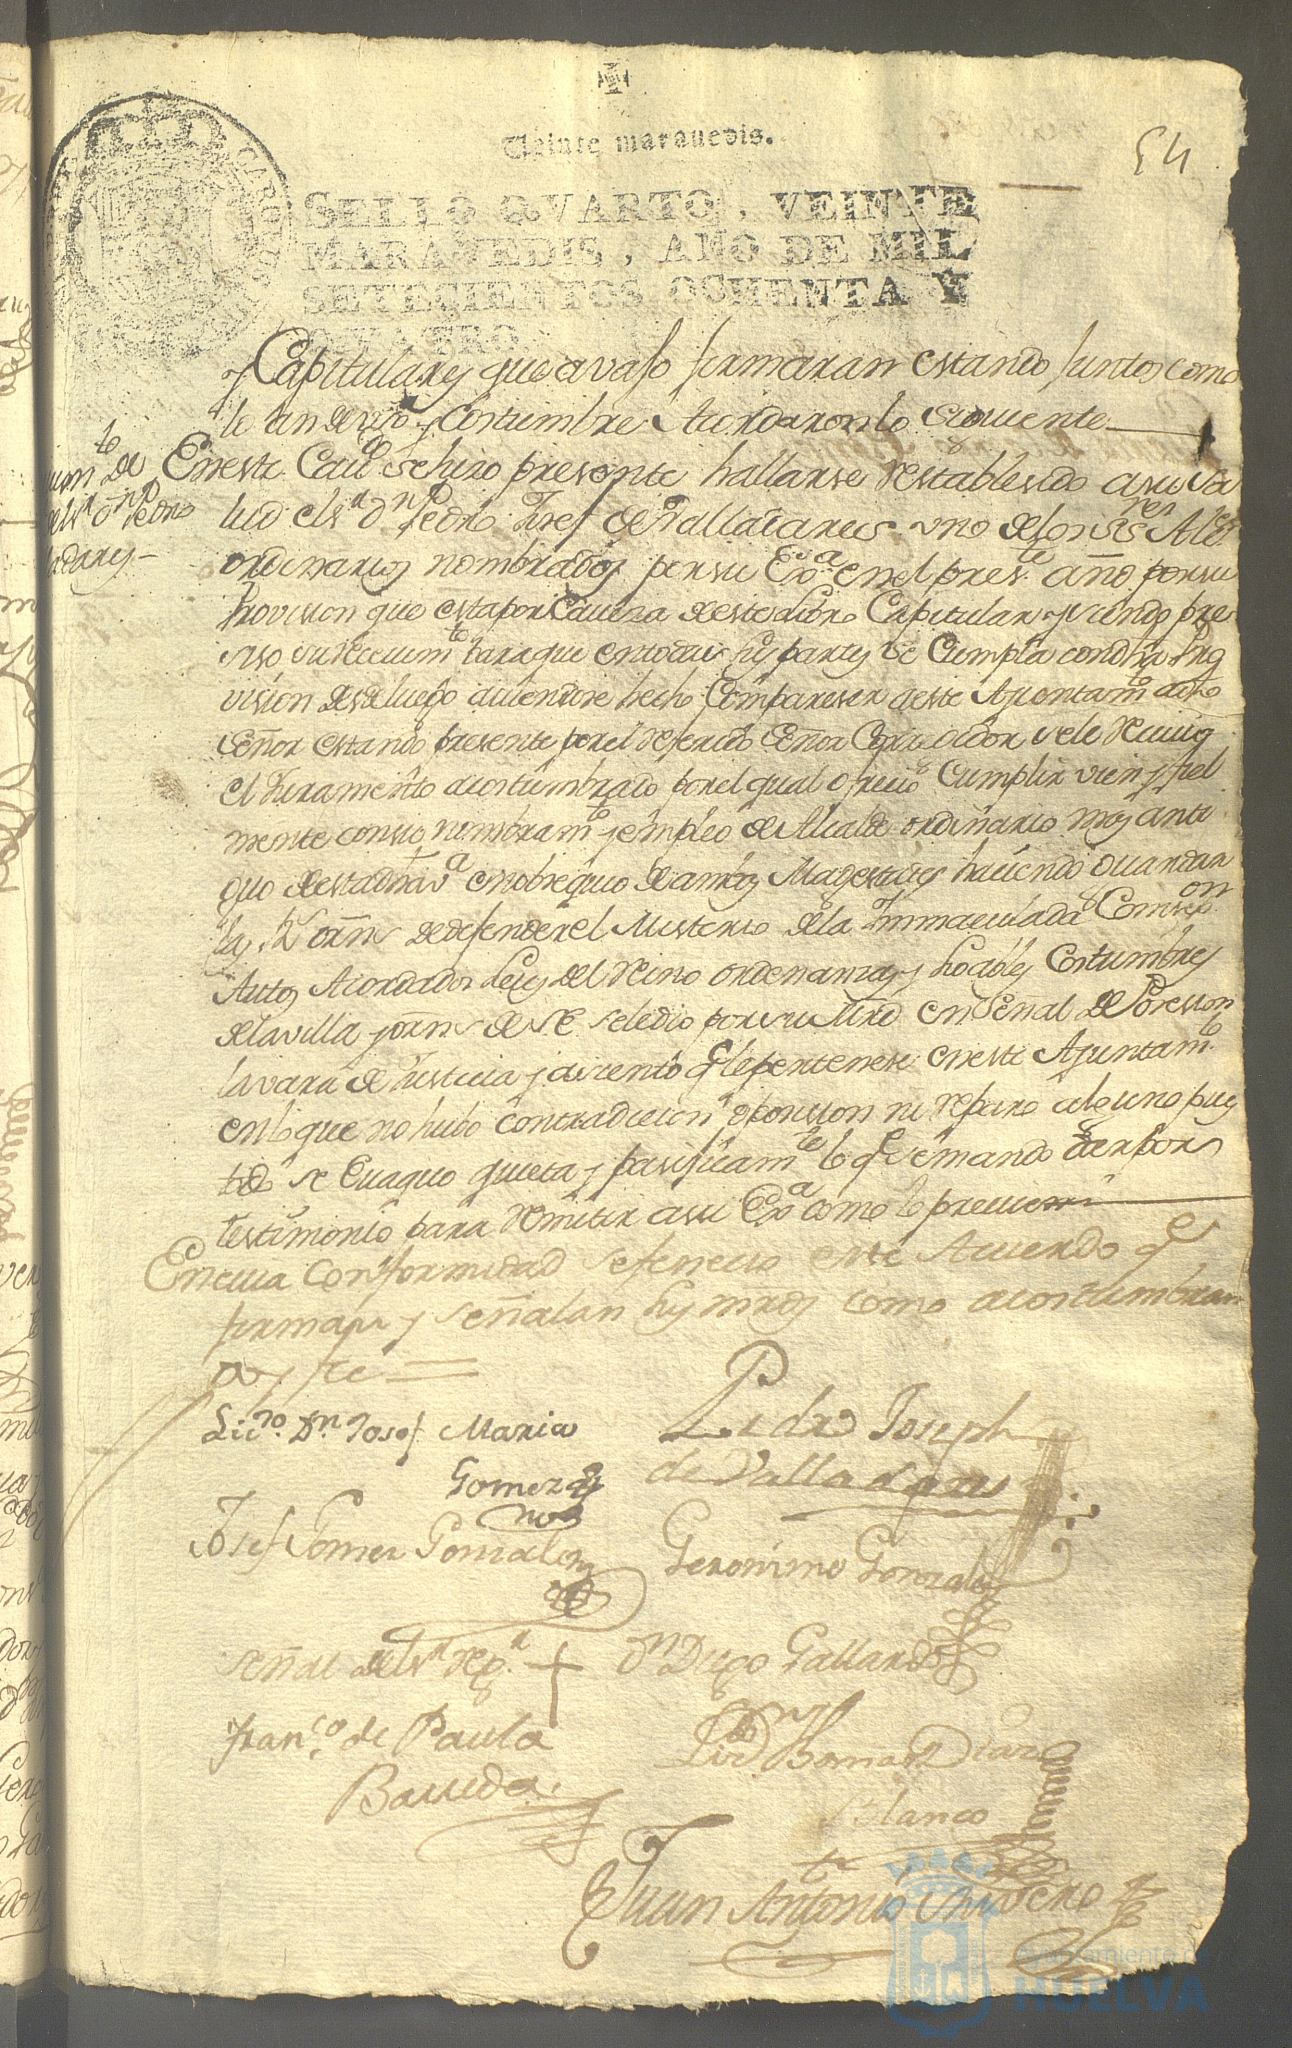 Veinte maravedis.
54
SELLO QVARTO, VEINTE
MARAVEDIS, AÑO DE MIL
SETECIENTOS OCHENTA Y
QVATRO.
y Capitulares que avajo firmaran estando Juntos como
lo an de uso y costumbre Acordaron lo siguente
En este Cavdo se hizo presente hallarse restablesido a su Sa
lud el Sr Dn Pedro Josef de Valladares uno de los SSres Alcs
ordinarios nombrados por su Exa en el preste año por su
Provision que esta por Caveza de este Libro Capitular y siendo pre
siso su recivimto para que en todas sus partes se Cumpla con dha Pro
vision desde luego aviendose hecho Compareser a este Ajuntamto dicho
Señor estando presente por el referido Señor Correxidor se le recivio
el Juramento acostumbrado por el qual ofrecio Cumplir vien y fiel
mente con su nombramto y empleo de Alcalde ordinario mas anti
guo de esta dha Va en obsequio de ambas Magestades haciendo guardar
las Rs ornes de defender el Misterio de la Inmaculada Consepon
Autos Acordados Leyes del Reino ordenanzas y loables Costumbres
de la villa y ornes de S E se le dio por su Mrd en Señal de Posesion
la vara de Justicia y asiento qe le pertenese en este Ajuntamto
en lo que no hubo contradicion oposision ni reparo alguno pues
todo se Evaquo quieta y pasificamte lo qe se mando dar por
testimonio para remitir a su Exa como lo previene
En cuia Conformidad se fenecio este Acuerdo qe
firman y señalan sus mrds como acostumbran
doy fee
Licdo Dn Josef Maria
Gomez
Pedro Joseph
de Valladares
Josef Gomez Gonzalez
Geronimo Gonzalez
Señal del Sr Regr +
Dn Diego Gallardo
Franco de Paula
Barreda
Blanco
Juan Antonio
Ayuntamiento de
HUELVA